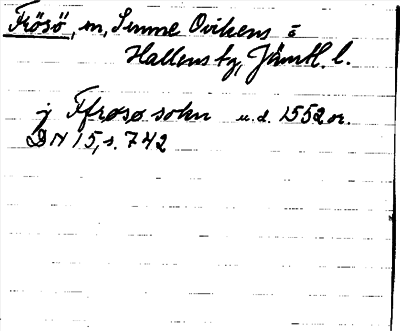 Frösö, m, Sunne Ovikens o
Hallens tg, Jämtl. l.
j Ffrøsø sokn u.d. 1552 or.
DN 15, s. 742